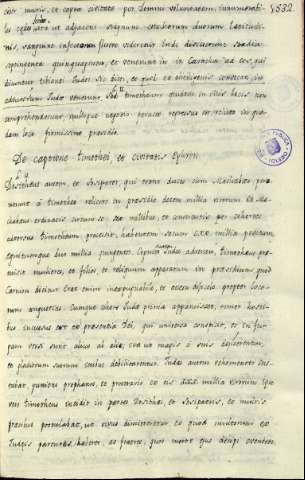 ter muros, et capta civitate per Domini voluntatem innumerabiles
cędes fecit ut adjacens stagnum stadiorum duorum latitudinis,
sanguine infectum fluere videretur. Inde discesserunt stadia
septingenta quinquaginta, et venerunt in in Caracha ad eos, qui
dicuntur tubianei Judei.
Timotheum quidem in illis locis non
comprehenderunt, nulloque negotio perfecto regressus est, relicto in quodam
loco firmissimo presidio.
De captione timothei, et civitatis Ephron
Dositheus autem, et Sosipater, qui erant duces cum Machabeo peremerunt
a timotheo relictos in presidio decem millia virorum. Et Machabeus
ordinatis circum se sex millibus, et constitutis per cohortes
adversus timotheum processit, habentem secum CXX millia peditum,
equitumque duo millia quingentos. Cognito autem Jude adventu, timotheus premisit
mulieres, et filios, et reliquum apparatum in presidium quod
Carnion dicitur. Erat enim inexpugnabile, et accessu difficile propter locorum
angustias. Cumque cohors Jude prima apparuisset, timor hostibus
incussus est ex presentia Dei, qui universa conspicit, et in fugam
versi sunt alius ab alio, ita ut magis a suis dejicerentur,
et gladiorum suorum ictibus debilitarentur. Judas autem vehementer instabat,
puniens prophanos, et prostravit ex eis XXX millia virorum. Ipse
vero timotheus incidit in partes Dosithei, et Sosipatris, et multis
precibus postulabat, ut vivus dimitteretur, eo quod multorum ex
Judeis parentes, haberet, ac fratres, quos morte ejus decipi eveniret.